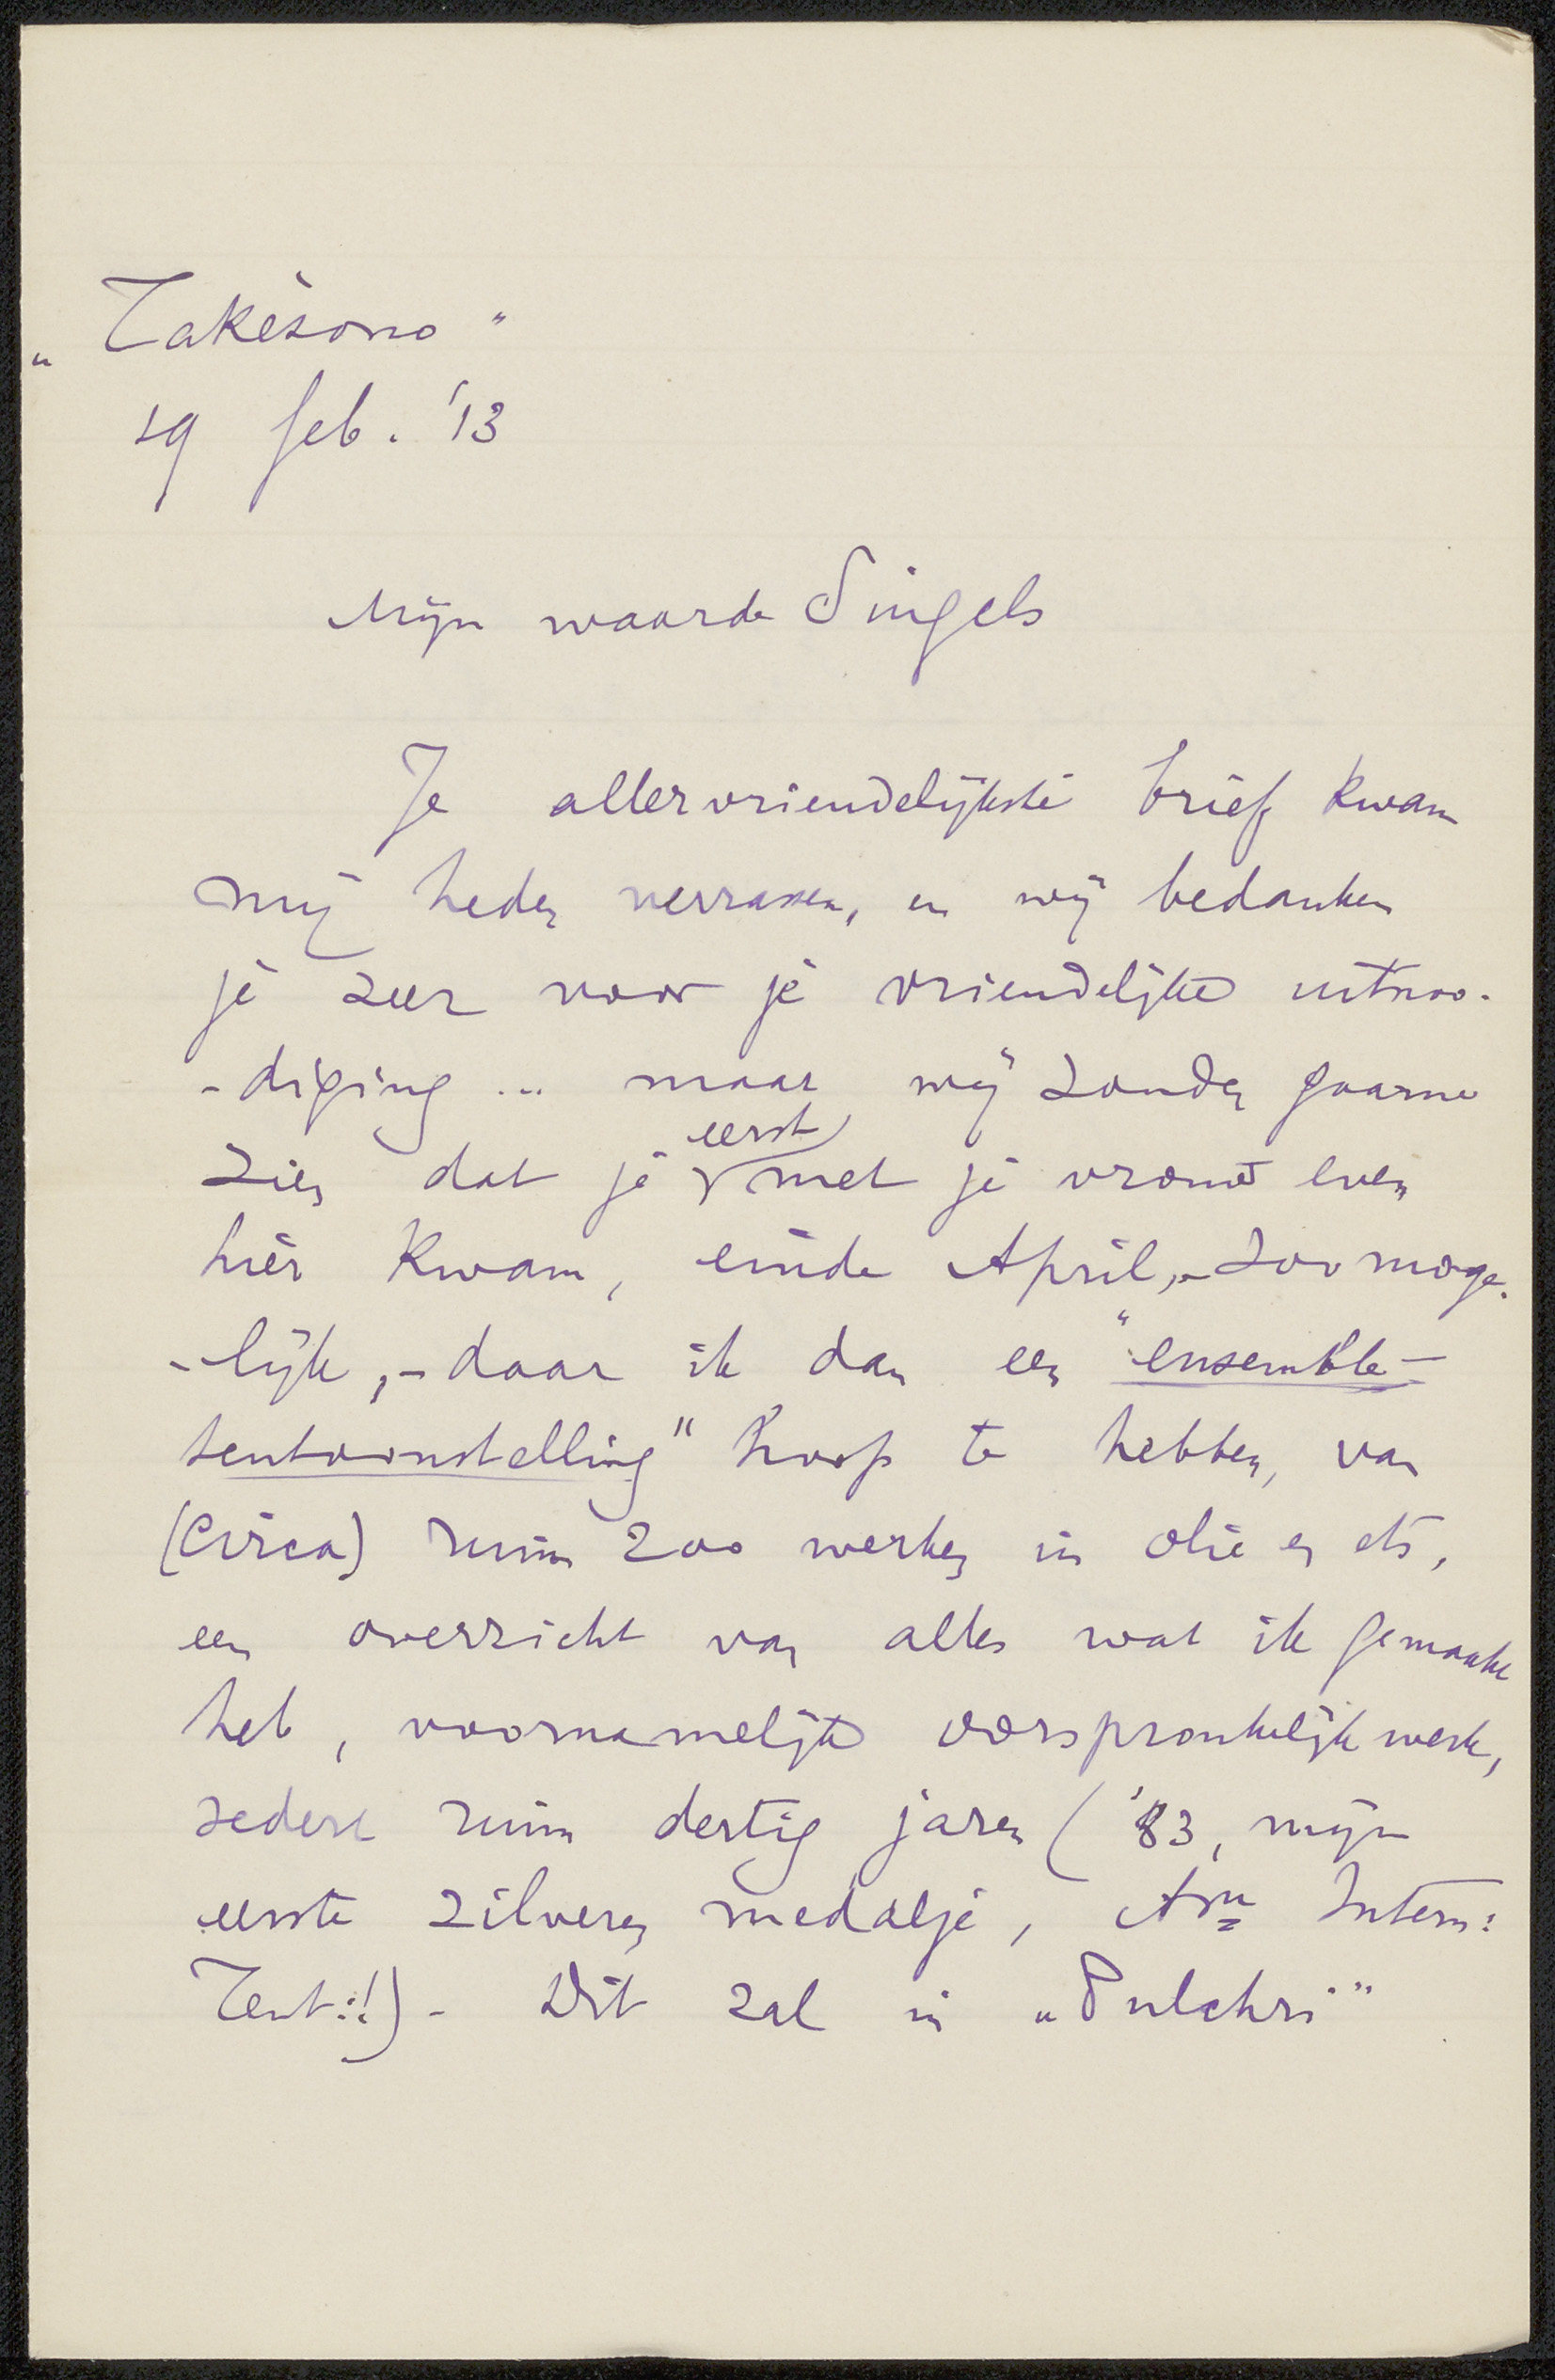 „Takèsono"
19 feb. '13
Mijn waarde Singels
Je allervriendelijkste brief kwam
mij heden verrassen, en wij bedanken
je zeer voor je vriendelijke uitnoo-
-diging ... maar wij zouden gaarne
eerst
zien dat je met je vrouw even
hier kwam, einde April, - zoo moge-
-lijk, - daar ik dan een "ensemble-
tentoonstelling" hoop te hebben, van
(circa) ruim 200 werken in olie en ets,
een overzicht van alles wat ik gemaakt
heb, voornamelijk oorspronkelijk werk,
sedert ruim dertig jaren ('83, mijn
eerste zilveren medalje, Asm Intern:
Tent:!) - Dit zal in „Pulchri"